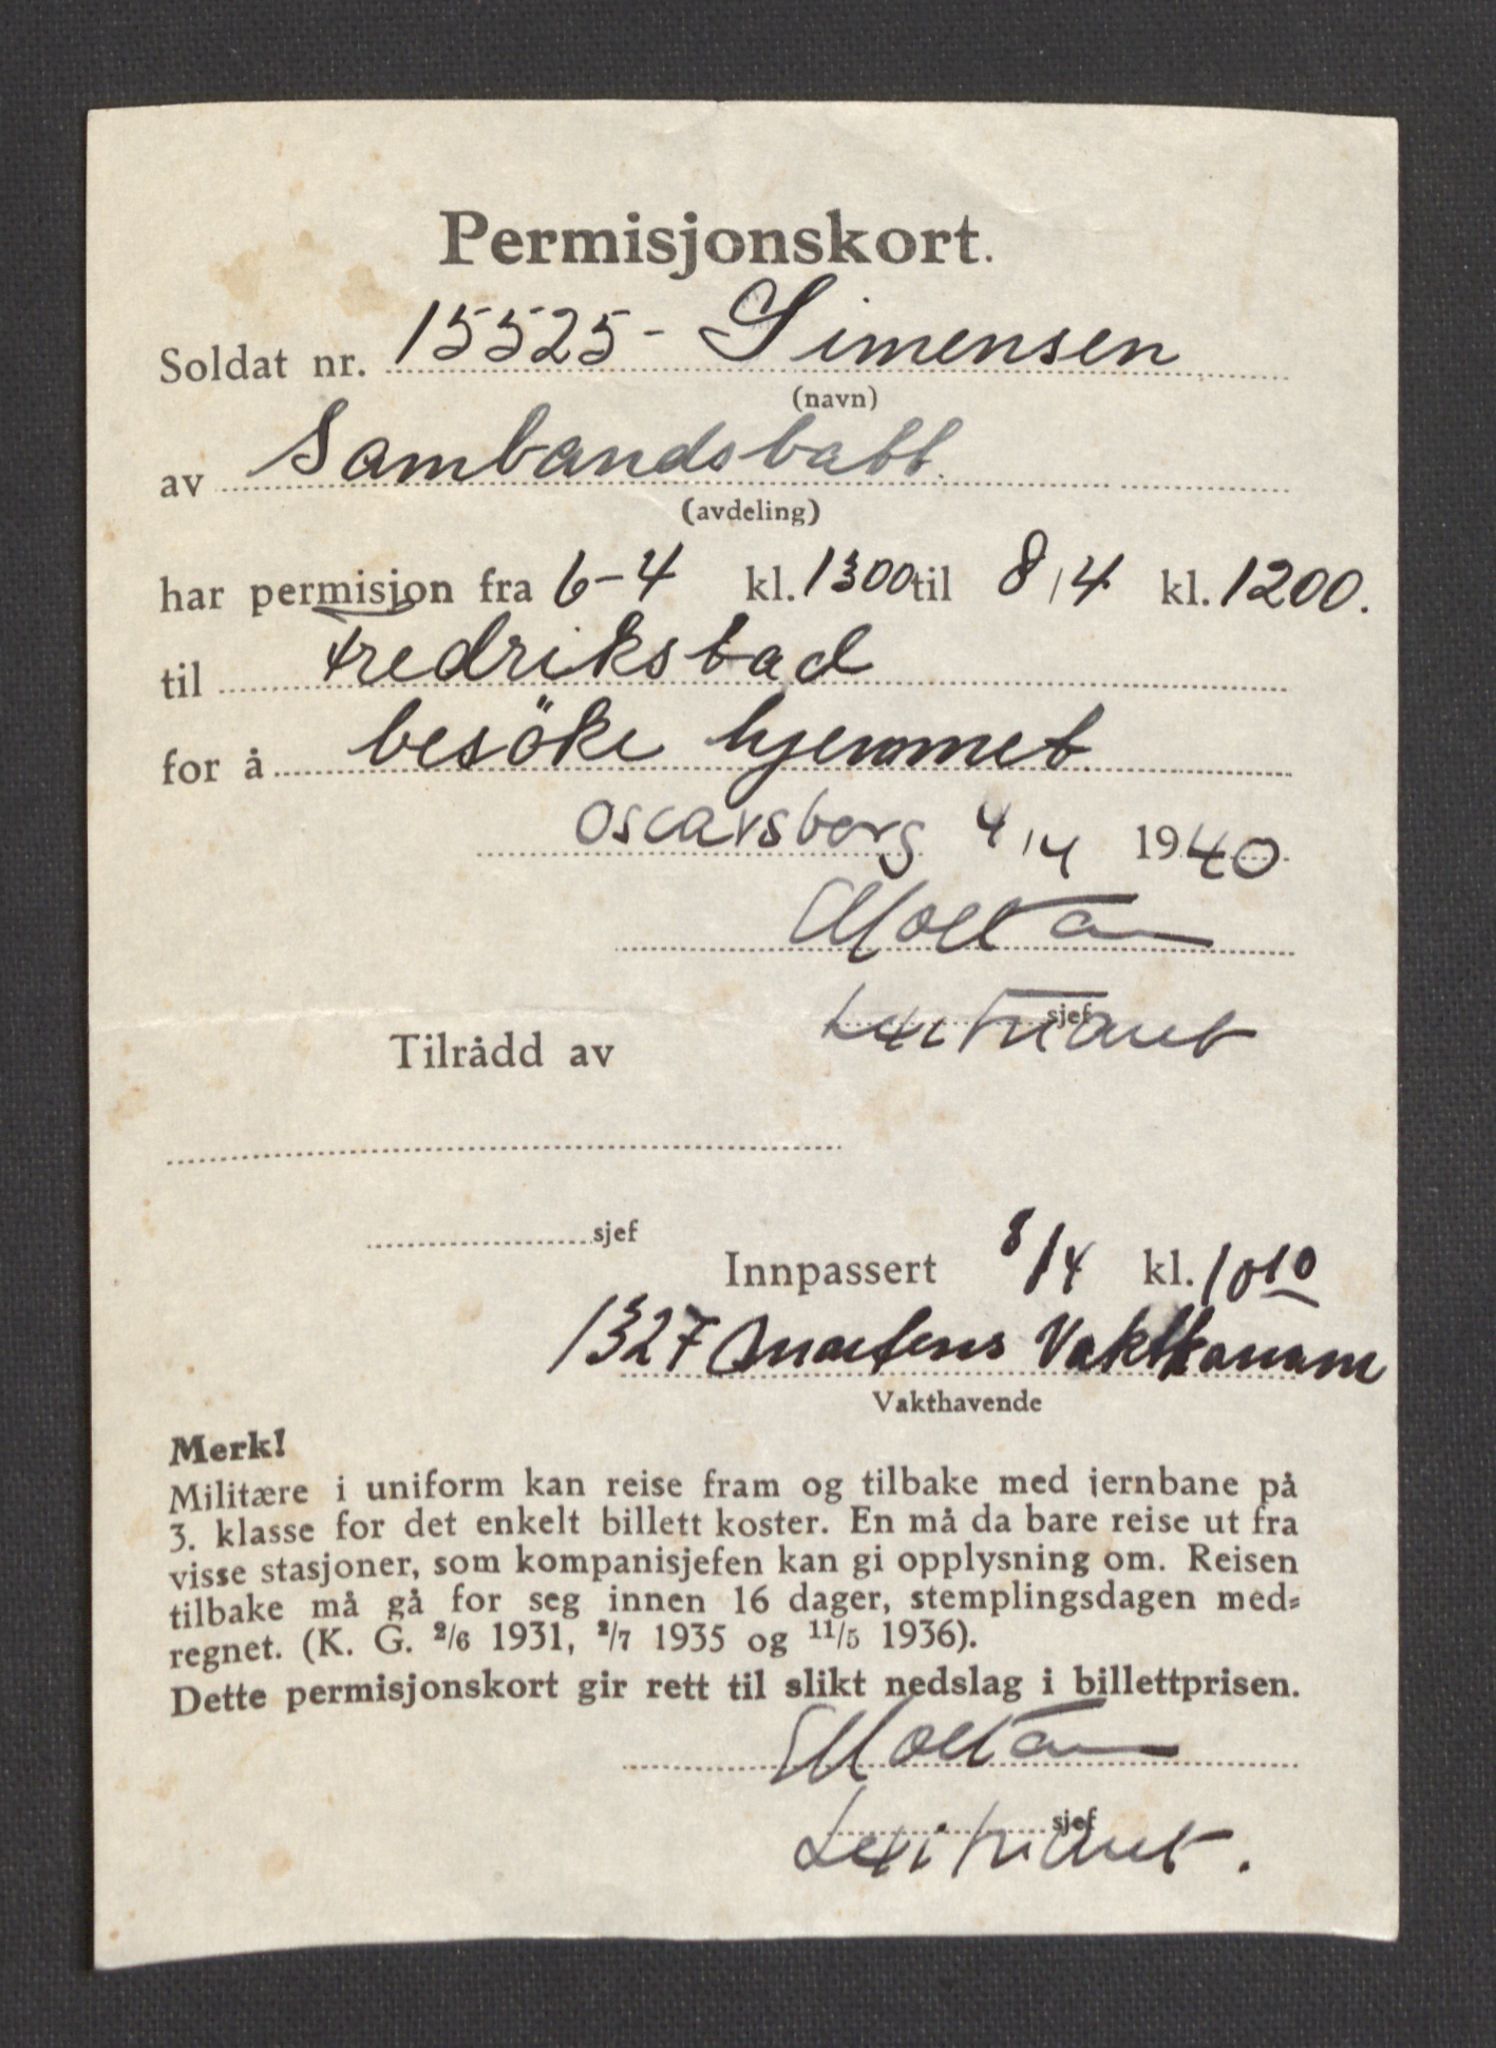 Permisjonskort.
Soldat nr. 15525 - Simensen
(navn)
av Sambandsbatt.
(avdeling)
har permisjon fra 6-4 kl. 1300 til 8/4 kl. 1200.
til Fredrikstad
for å besöke hjemmet
Oscarsborg 4/4 1940
sjef
Tilrådd av
sjef
Innpassert 8/4 kl. 10 10
1327
Vakthavende
Merk!
Militære i uniform kan reise fram og tilbake med jernbane på
3. klasse for det enkelt billett koster. En må da bare reise ut fra
visse stasjoner, som kompanisjefen kan gi opplysning om. Reisen
tilbake må gå for seg innen 16 dager, stemplingsdagen med-
regnet. (K. G. 2/6 1931, 2/7 1935 og 11/5 1936).
Dette permisjonskort gir rett til slikt nedslag i billettprisen.
sjef